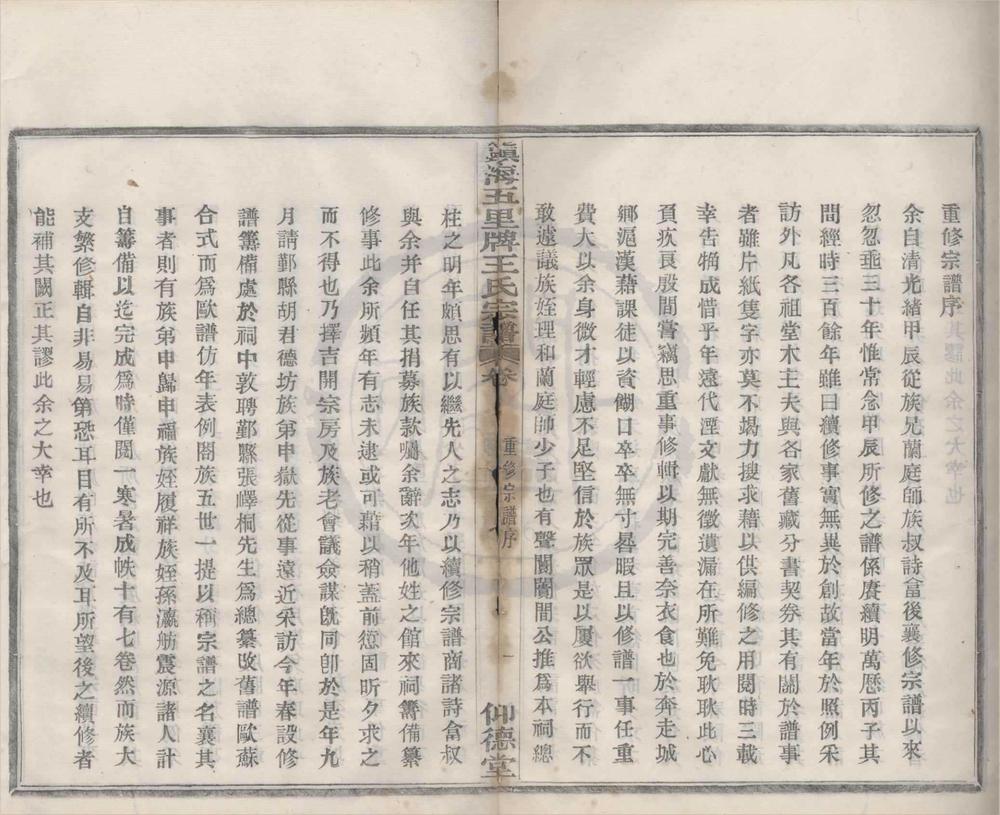 重修宗譜序
余自清光緒甲辰從族兄蘭庭師族叔詩畬後襄修宗譜以來
忽忽垂三十年惟常念甲辰所修之譜係賡續明萬厯丙子其
間經時三百餘年雖曰續修事實無異於創故當年於照例采
訪外凡各祖堂木主夫與各家舊藏分書契券其有關於譜事
者雖片紙隻字亦莫不揚力搜求藉以供編修之用閱時三載
幸告犓成惜乎年遠代湮文獻無徵遺漏在所難免耿耿此心
頁疚良殷間嘗竊思重事修輯以期完善奈衣食也於奔走城
鄉滬漢藉課徒以資餬口卒卒無寸晷暇且以修譜一事任重
費大以余身微才輕慮不足堅信於族眾是以屢欲舉行而不
敢遽議族姪理和蘭庭師少子也有聲闤闠間公推為本祠總
鎮海五里牌王氏宗譜 卷 重修宗譜序 一 仰德堂
柱之明年頗思有以繼先人之志乃以續修宗譜商諸詩畬叔
與余并自任其捐募族款囑余辭次年他姓之館來祠籌備纂
修事此余所頻年有志未逮或可藉以稍蓋前愆固昕夕求之
而不得也乃擇吉開宗房及族老會議僉謀既同卽於是年九
月請鄞縣胡君德坊族第申嶽先從事遠近采訪今年春設修
譜籌備處於祠中敦聘鄞縣張嶧桐先生爲總纂改舊譜歐蘇
合式而爲歐譜仿年表例閤族五世一提以稱宗譜之名襄其
事者則有族第申歸申福族姪履祥族姪孫瀛舫震源諸人計
自籌備以迄完成爲時僅閱一寒暑成帙十有七卷然而族大
支繁修輯自非易易第恐耳目有所不及耳所望後之續修者
能補其闕正其謬此余之大幸也